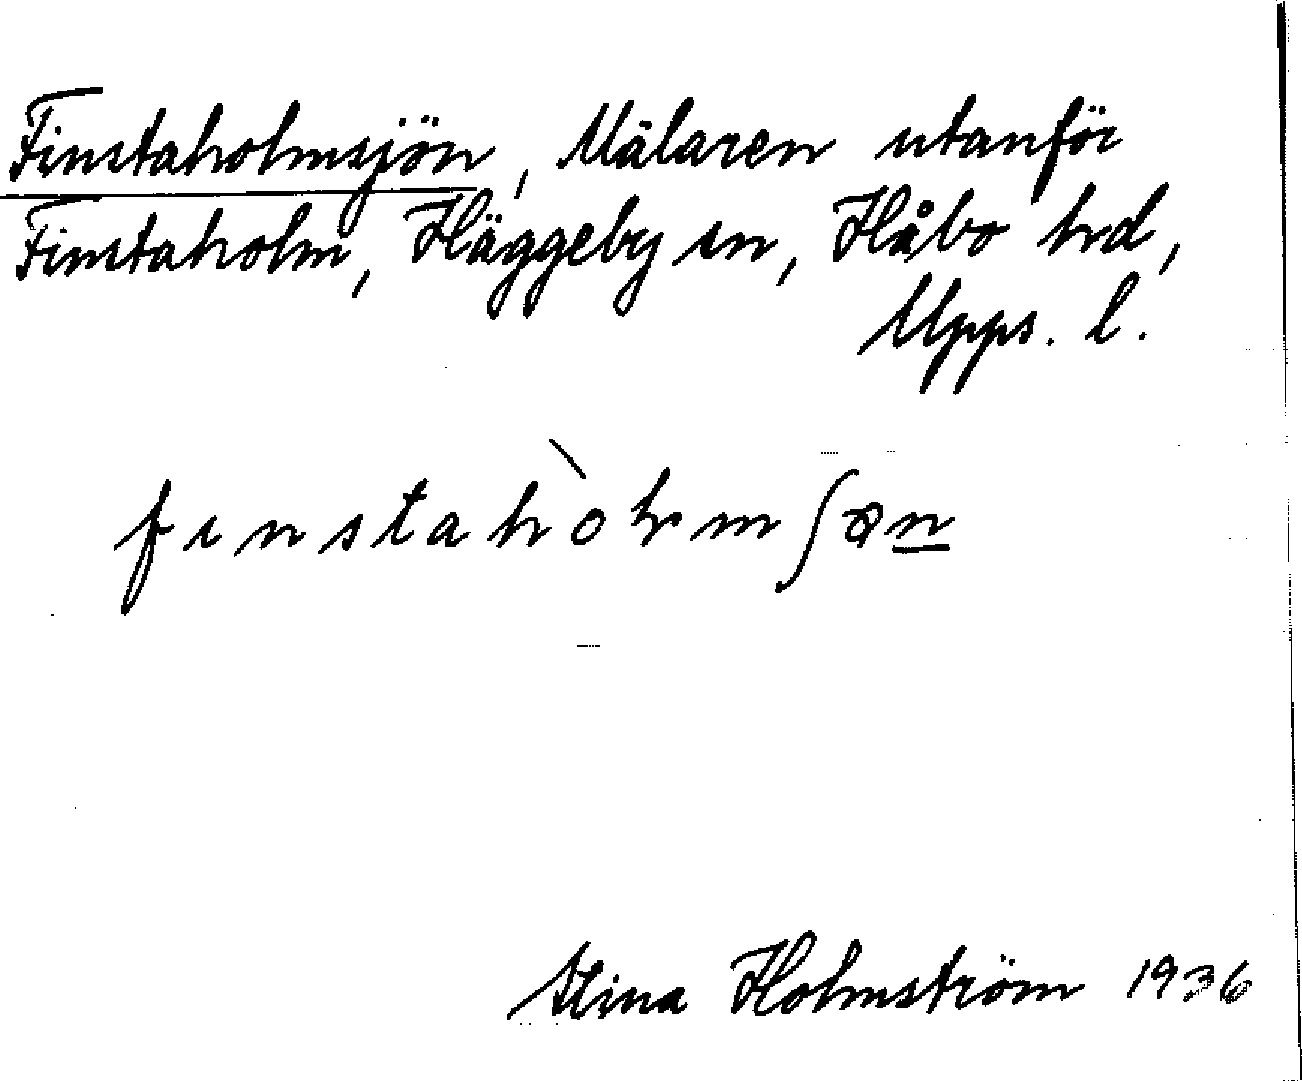 Finstaholmsjön, Mälaren utanför
Finstaholm, Häggeby sn, Håbo hrd,
Upps. l.
fınstahòhmʃøn
Stina Holmström 1936